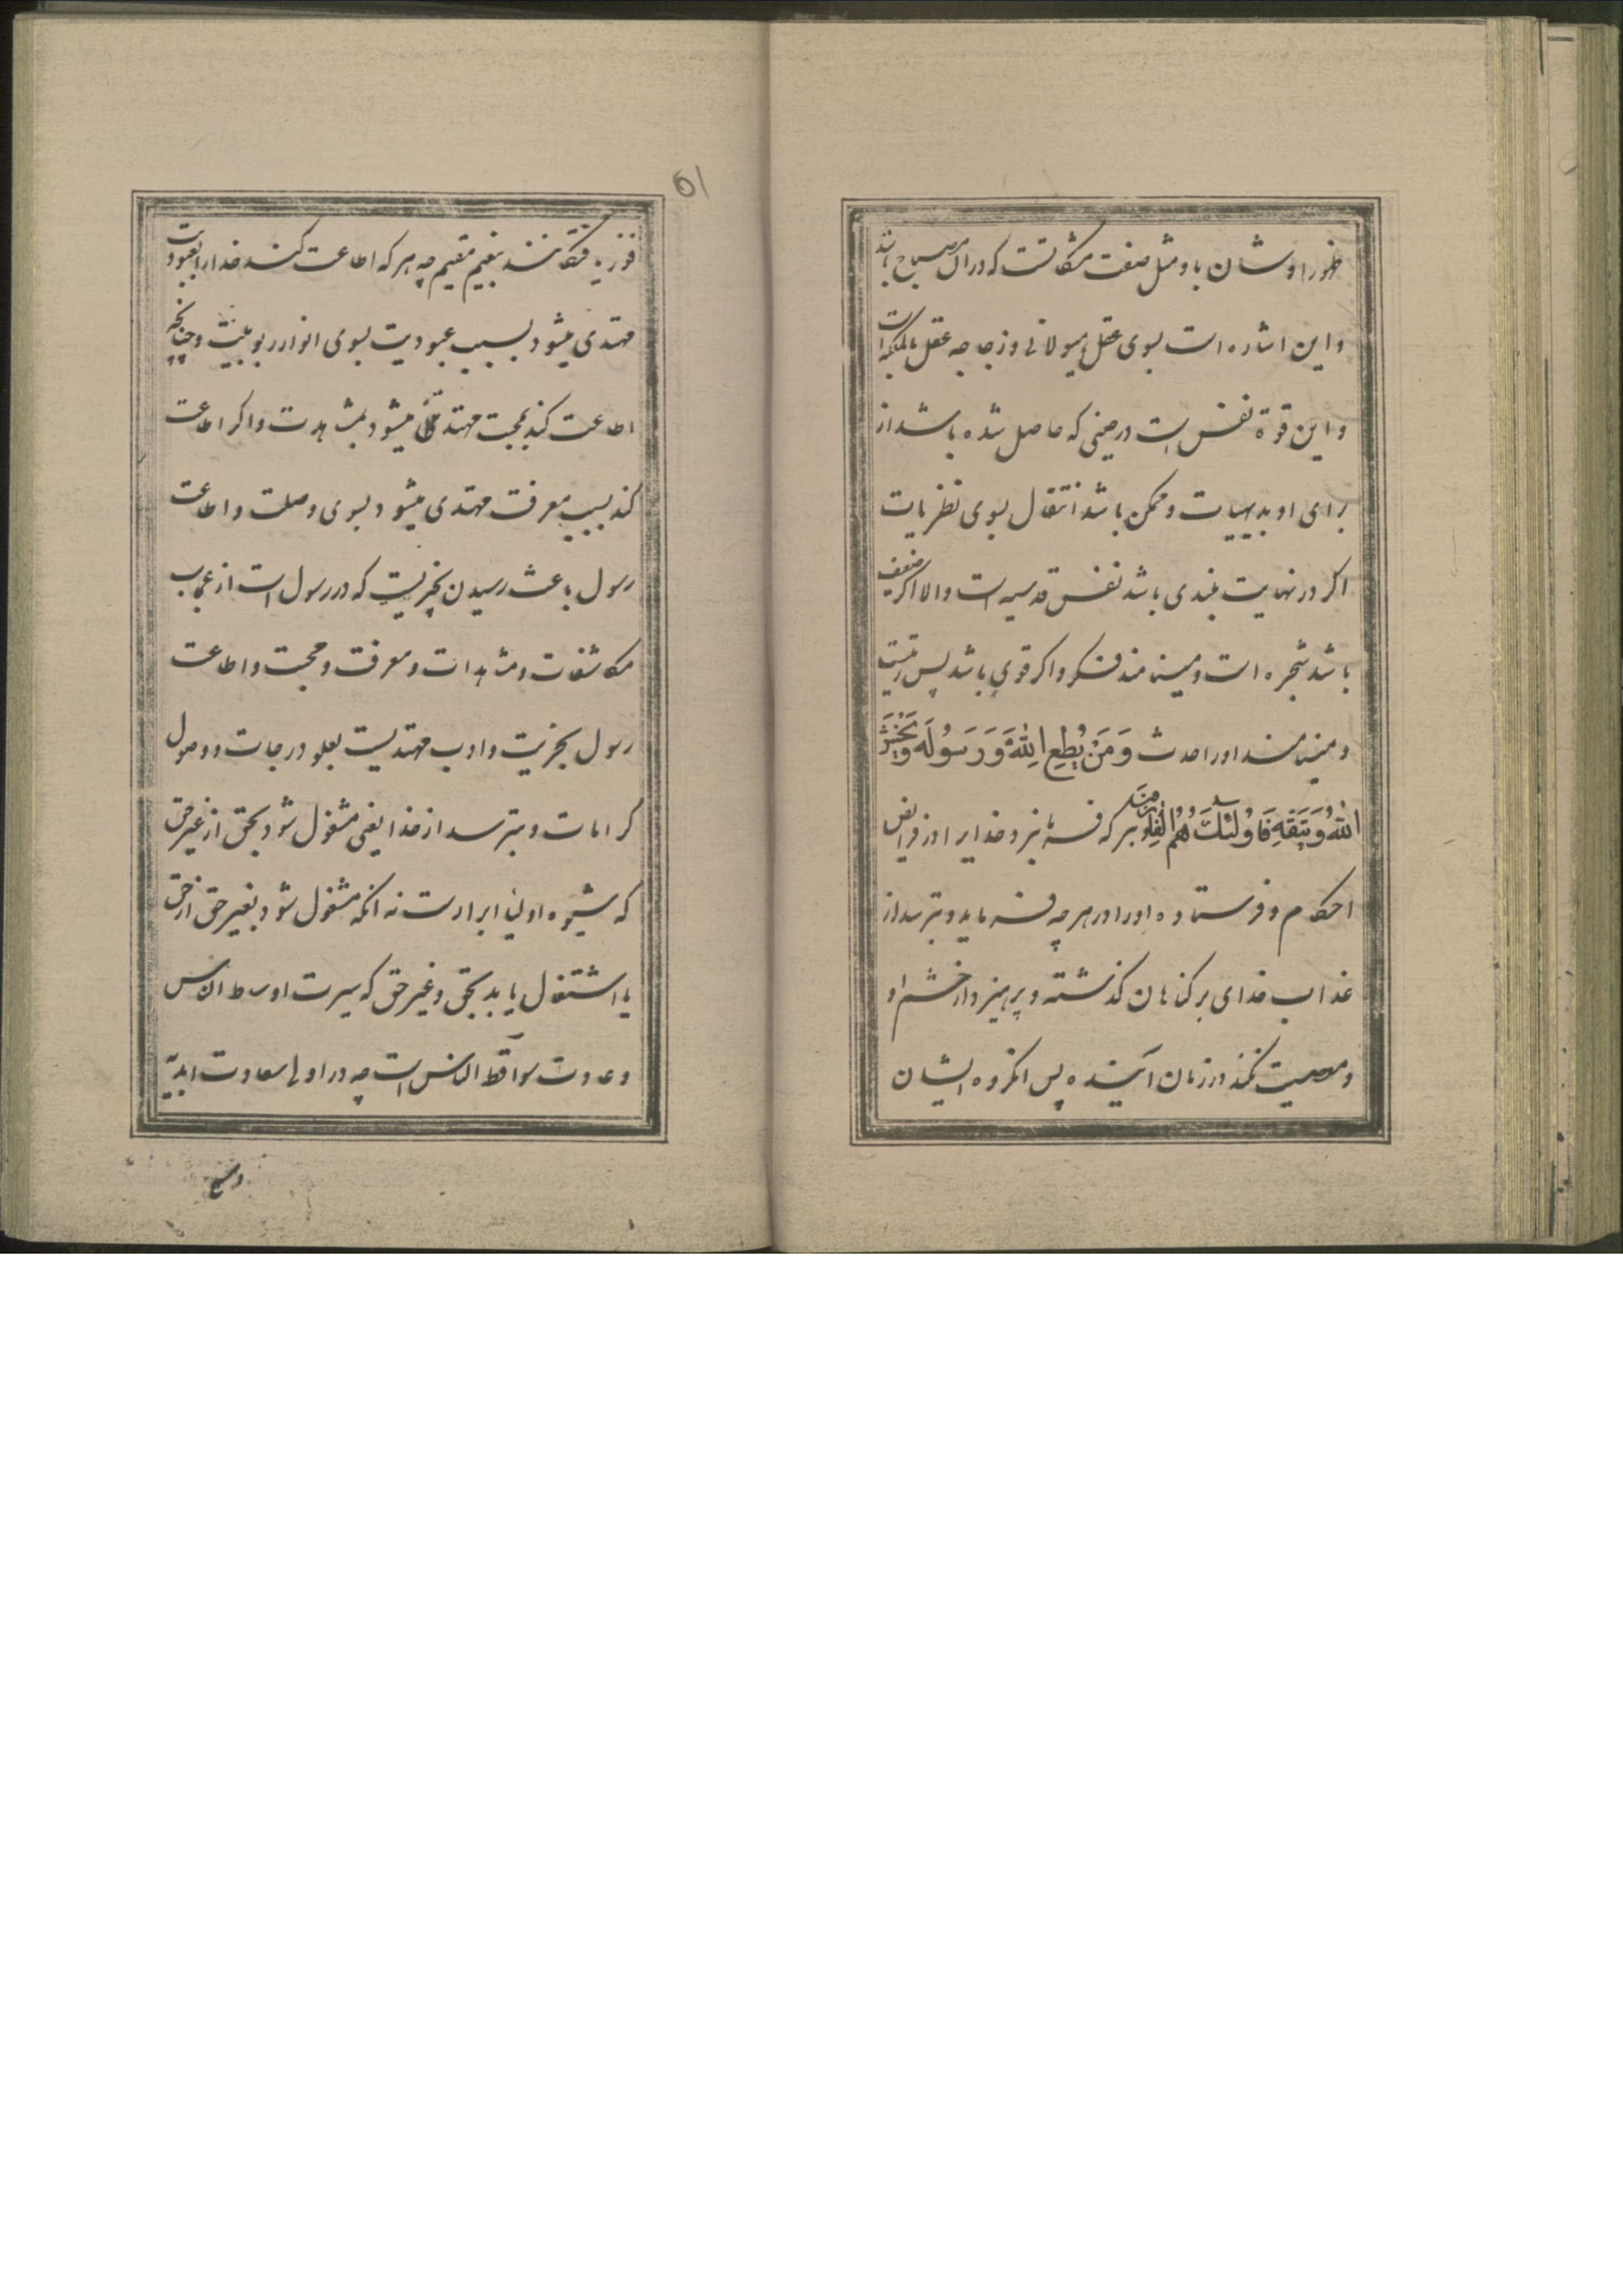 ظهور او شان باو مثل صفت مشکاتست که در ان مصباح باشد
و این اشاره است بسوی عقل هیولانی و زجاجه عقل بالملکه است
و این قوة نفس است در حینی که حاصل شده باشد از
برای او بدیهیات و ممکن باشد انتقال بسوی نظریات
اکر در نهایت بلندی باشد نفس قدسیه است والا اکر ضعیف
باشد شجره است و مینامند فکر و اکر قوی باشد پس زیتست
و مینامند او را حدث وَمَنْ يُطِعِ اللهَ وَرَسُولَهُ وَيَخْشَ
اللهَ وَيَتَّقْهِ فَاُولئِكَ هُمُ الْفائِزُونَ هر که فرمان برد خدایرا در فرایض
احکام و فرستاده او را در هر چه فرماید و بترسد از
عذاب خدای بر کناهان کذشته و پرهیزد از خشم او
و معصیت نکند در زمان آینده پس انکروه ایشان
فوز یافتکانند بنعیم مقیم چه هر که اطاعت کند خدا را بعبودیت
مهتدی میشود بسبب عبودیت بسوی انوار ربوبیت و چنانچه
اطاعت کند بمحبت مهتدی میشود بمشاهدت و اکر اطاعت
کند بسبب معرفت مهتدی میشود بسوی وصلت و اطاعت
رسول باعث رسیدن بچیزیست که در رسول است از عجایب
مکاشفات و مشاهدات و معرفت و محبت و اطاعت
رسول بحریت و ادب مهتدیست بعلو درجات و وصول
کرامات و بترسد از خدا یعنی مشغول شود بحق از غیر حق
که شیوه اولیا ابرارست نه انکه مشغول شود بغیر حق از حق
یا اشتغال یابد بحق و غیر حق که سیرت اوسط الناس
و عادت سواقط الناس است چه در اولی سعادت ابدیّه